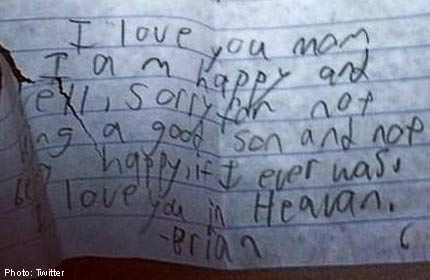 I love you mom
I am happy and
ell, Sorry for not
ing a good son and not
happy, if I ever was.
love you in Heavan.
-Brian
Photo: Twitter